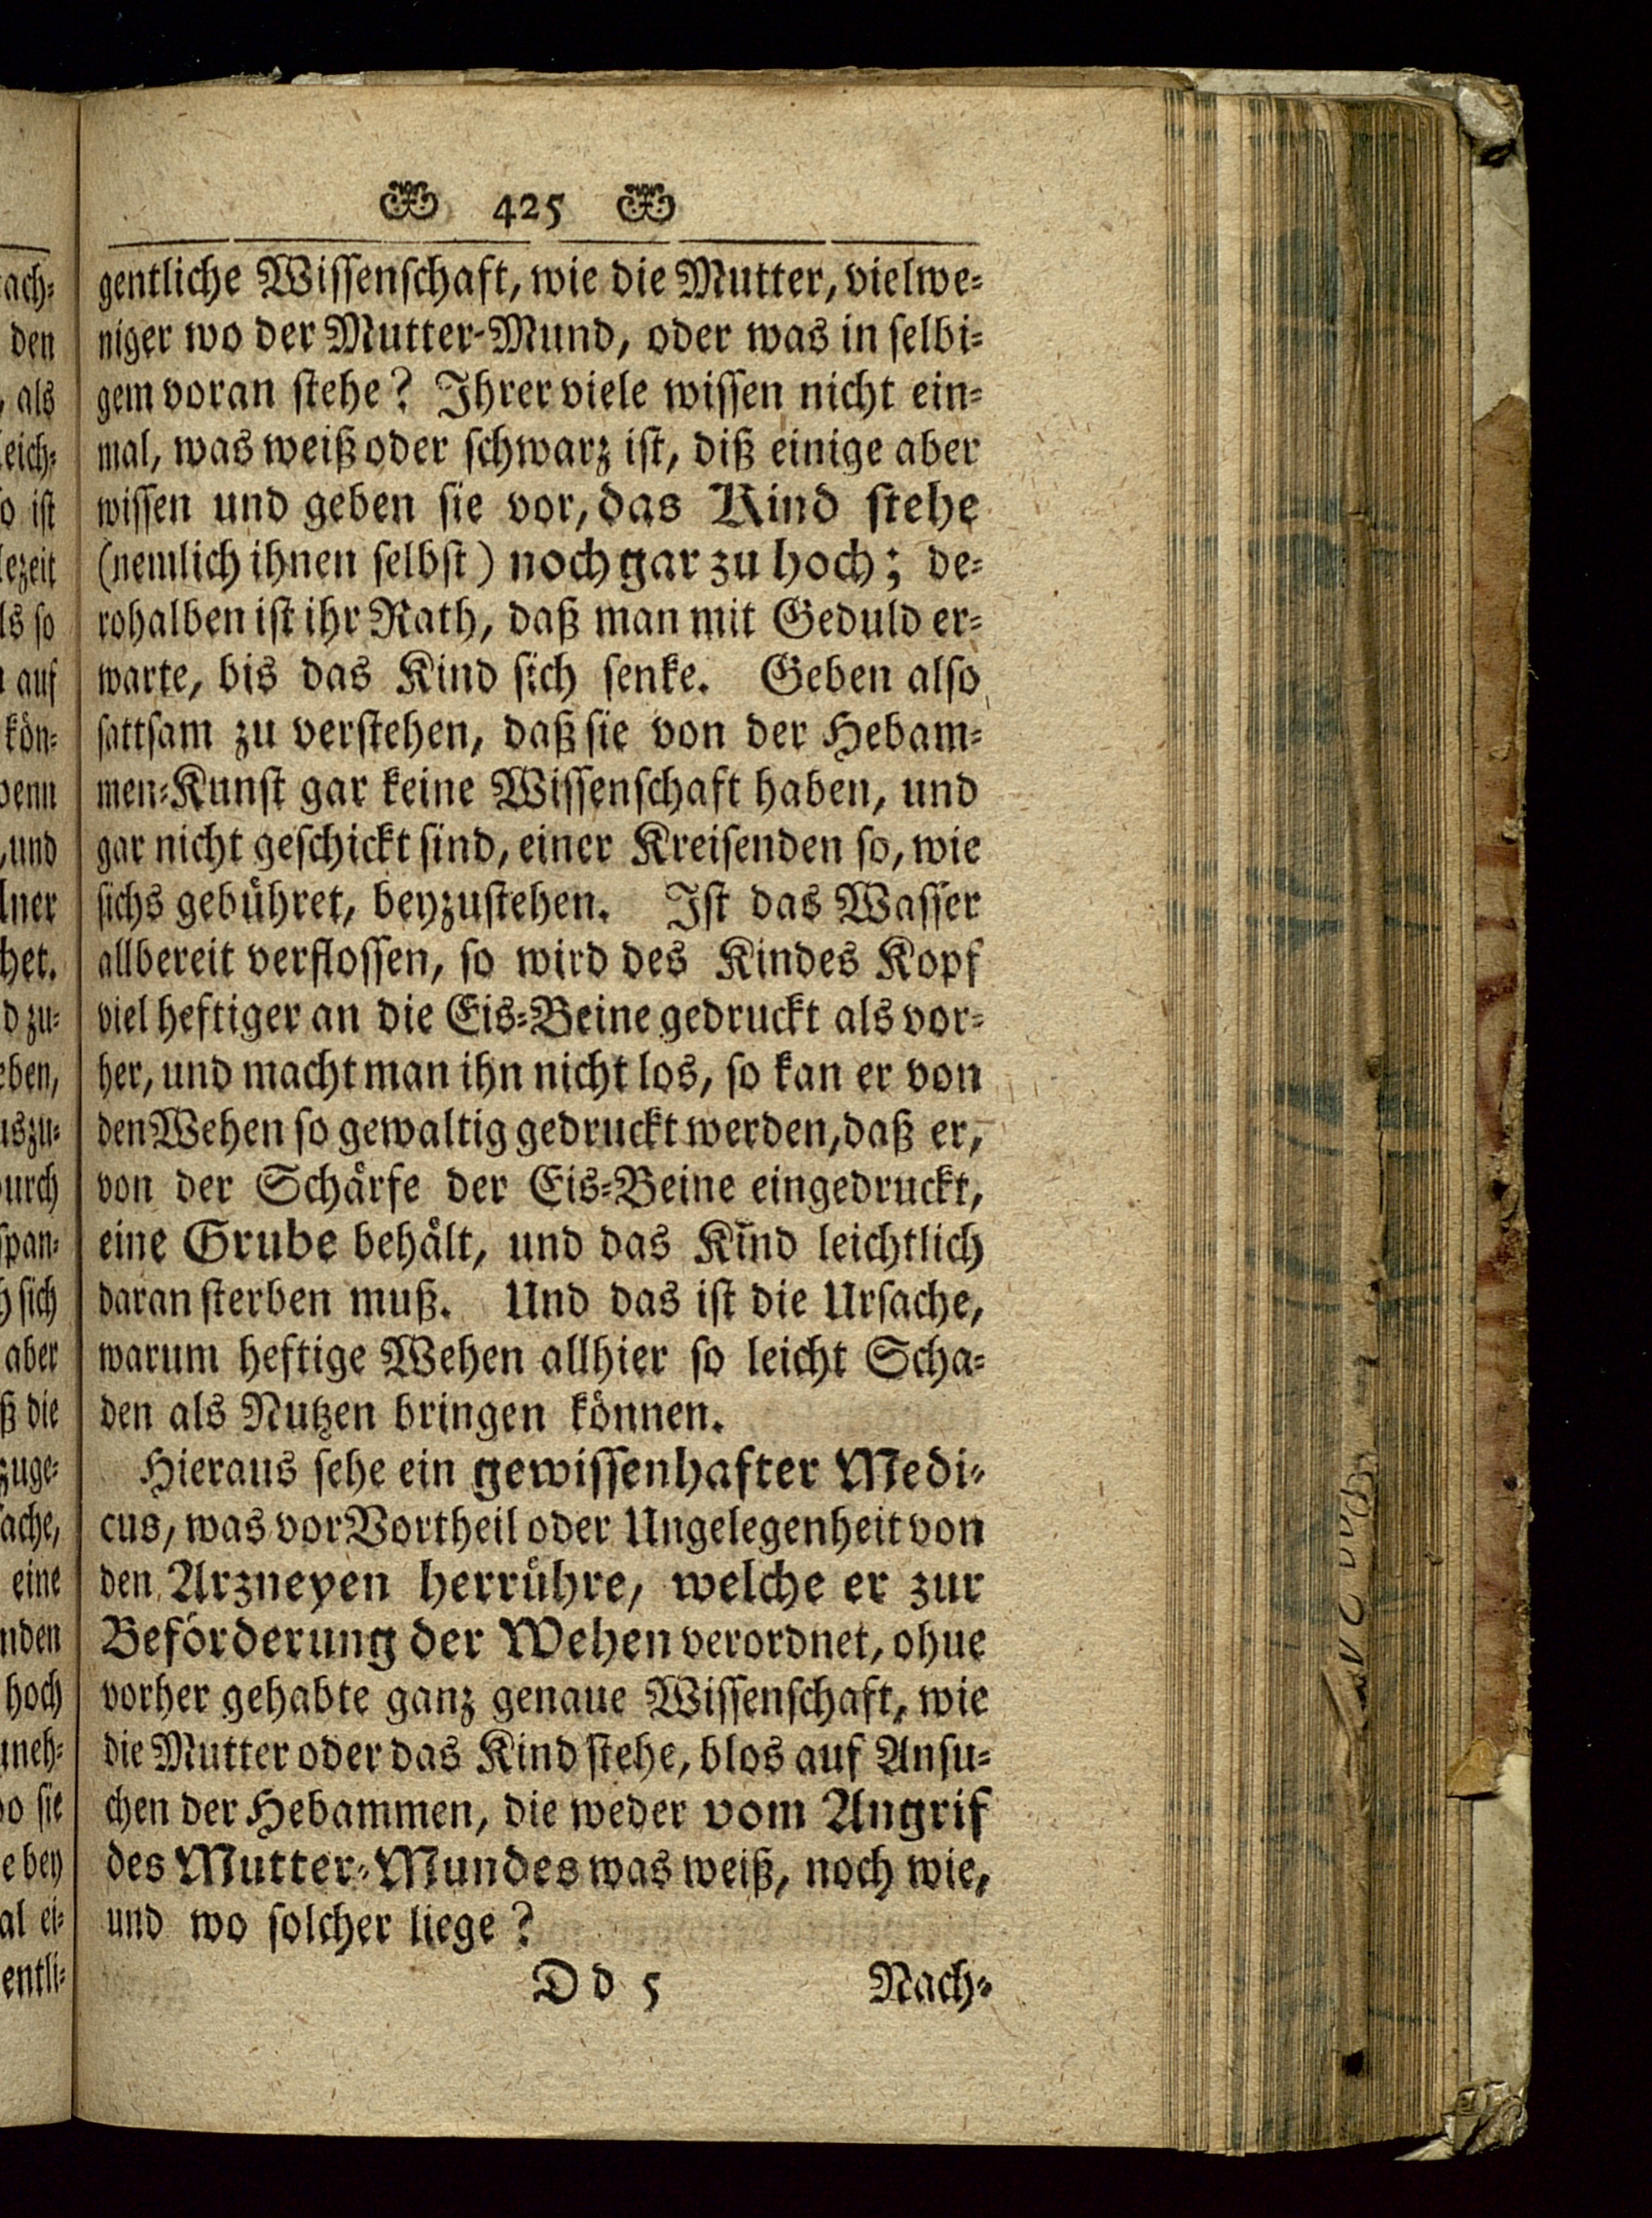 425
gentliche Wissenschaft, wie die Mutter, vielwe-
niger wo der Mutter-Mund, oder was in selbi-
gem voran stehe? Ihrer viele wissen nicht ein-
mal, was weiß oder schwarz ist, diß einige aber
wissen und geben sie vor, das Kind stehe
(nemlich ihnen selbst) noch gar zu hoch; de-
rohalben ist ihr Rath, daß man mit Geduld er-
warte, bis das Kind sich senke. Geben also
sattsam zu verstehen, daß sie von der Hebam-
men-Kunst gar keine Wissenschaft haben, und
gar nicht geschickt sind, einer Kreisenden so, wie
sichs gebühret, beyzustehen. Ist das Wasser
allbereit verflossen, so wird des Kindes Kopf
viel heftiger an die Eis-Beine gedruckt als vor-
her, und macht man ihn nicht los, so kan er von
den Wehen so gewaltig gedruckt werden, daß er,
von der Schärfe der Eis-Beine eingedruckt,
eine Grube behält, und das Kind leichtlich
daran sterben muß. Und das ist die Ursache,
warum heftige Wehen allhier so leicht Scha-
den als Nutzen bringen können.
Hieraus sehe ein gewissenhafter Medi-
cus, was vor Vortheil oder Ungelegenheit von
den Arzneyen herrühre, welche er zur
Beförderung der Wehen verordnet, ohue
vorher gehabte ganz genaue Wissenschaft, wie
die Mutter oder das Kind stehe, blos auf Ansu-
chen der Hebammen, die weder vom Angrif
des Mutter-Mundes was weiß, noch wie,
und wo solcher liege?
Dd 5 Nach-